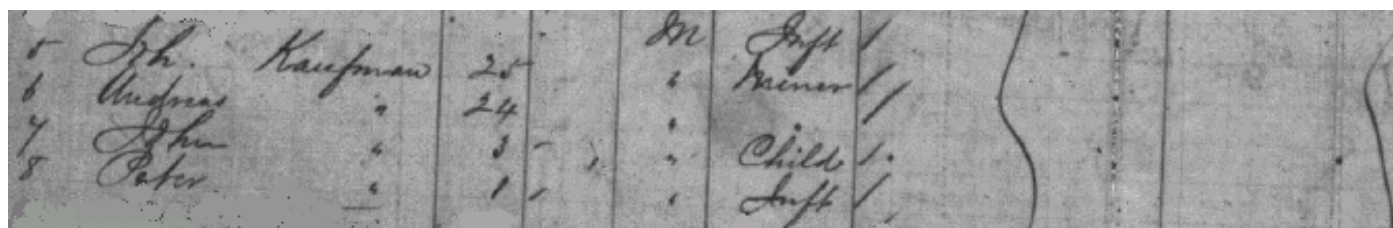 5 Joh. Kaufman 25 M Inft /
6 Andreas " 24 " Miner /
7 John " 3 - " Child /
8 Peter " 1 - " Inft /